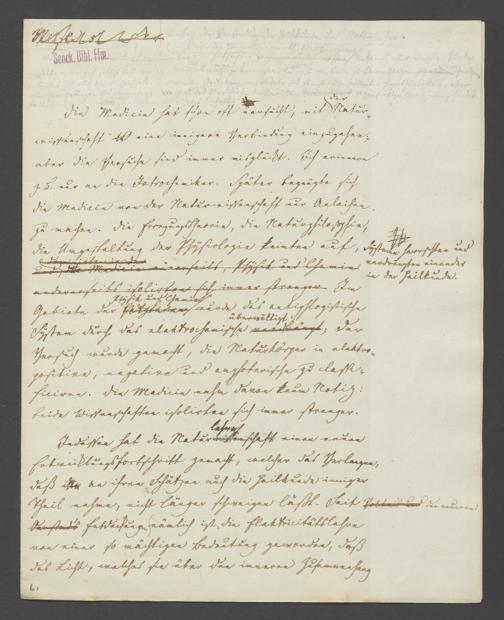 Senck. Bibl. Ffm.
Die Medicin hat schon oft versucht, mit der Natur-
wissenschaft eine innigere Verbindung einzugehen;
aber die Versuche sind immer mißglückt. Ich erinnere
z. B. nur an die Iatrochemiker. Später begnügte sich
die Medicin von der Naturwissenschaft nur Anleihen
zu machen. Die Erregungstheorie, die Naturphilosophie,
die Umgestaltung der Physiologie keimten auf,
herrschten und
verdrängten einander
in der Heilkunde.
die Medicin einerseits, Physik und Chemie
andererseits isolirten sich immer strenger. Im
Gebiete der Physik und Chemie wurde das antiphlogistische
System durch das elektrochemische überwältigt; der
Versuch wurde gemacht, die Naturkörper in elektro-
positive, negative und amphoterische zu classi-
ficiren. Die Medicin nahm davon kaum Notiz:
beide Wissenschaften isolirten sich immer strenger.
Indessen hat die Naturlehre einen neuen
Entwicklungsfortschritt gemacht, welcher das Verlangen,
daß an ihren Schätzen auch die Heilkunde innigen
Theil nehme, nicht länger schweigen läßt. Seit der neueren
Entdeckung nämlich ist die Elektricitätslehre
von einer so mächtigen Bedeutung geworden, daß
das Licht, welches sie über den inneren Zusammenhang